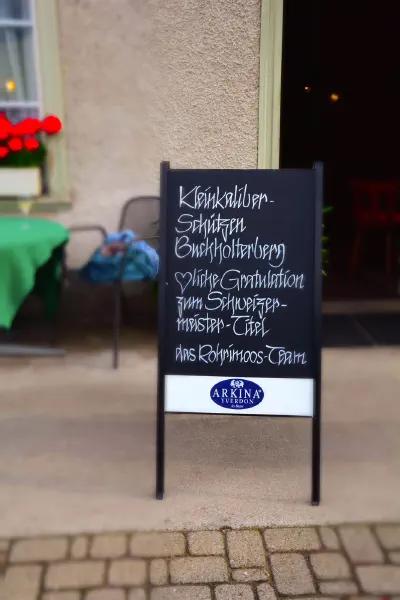 Kleinkaliber-
Schützen
Buchholterberg
♡liche Gratulation
zum Schweizer-
meister-Titel
das Rohrimoos-Team
ARKINA
YVERDON